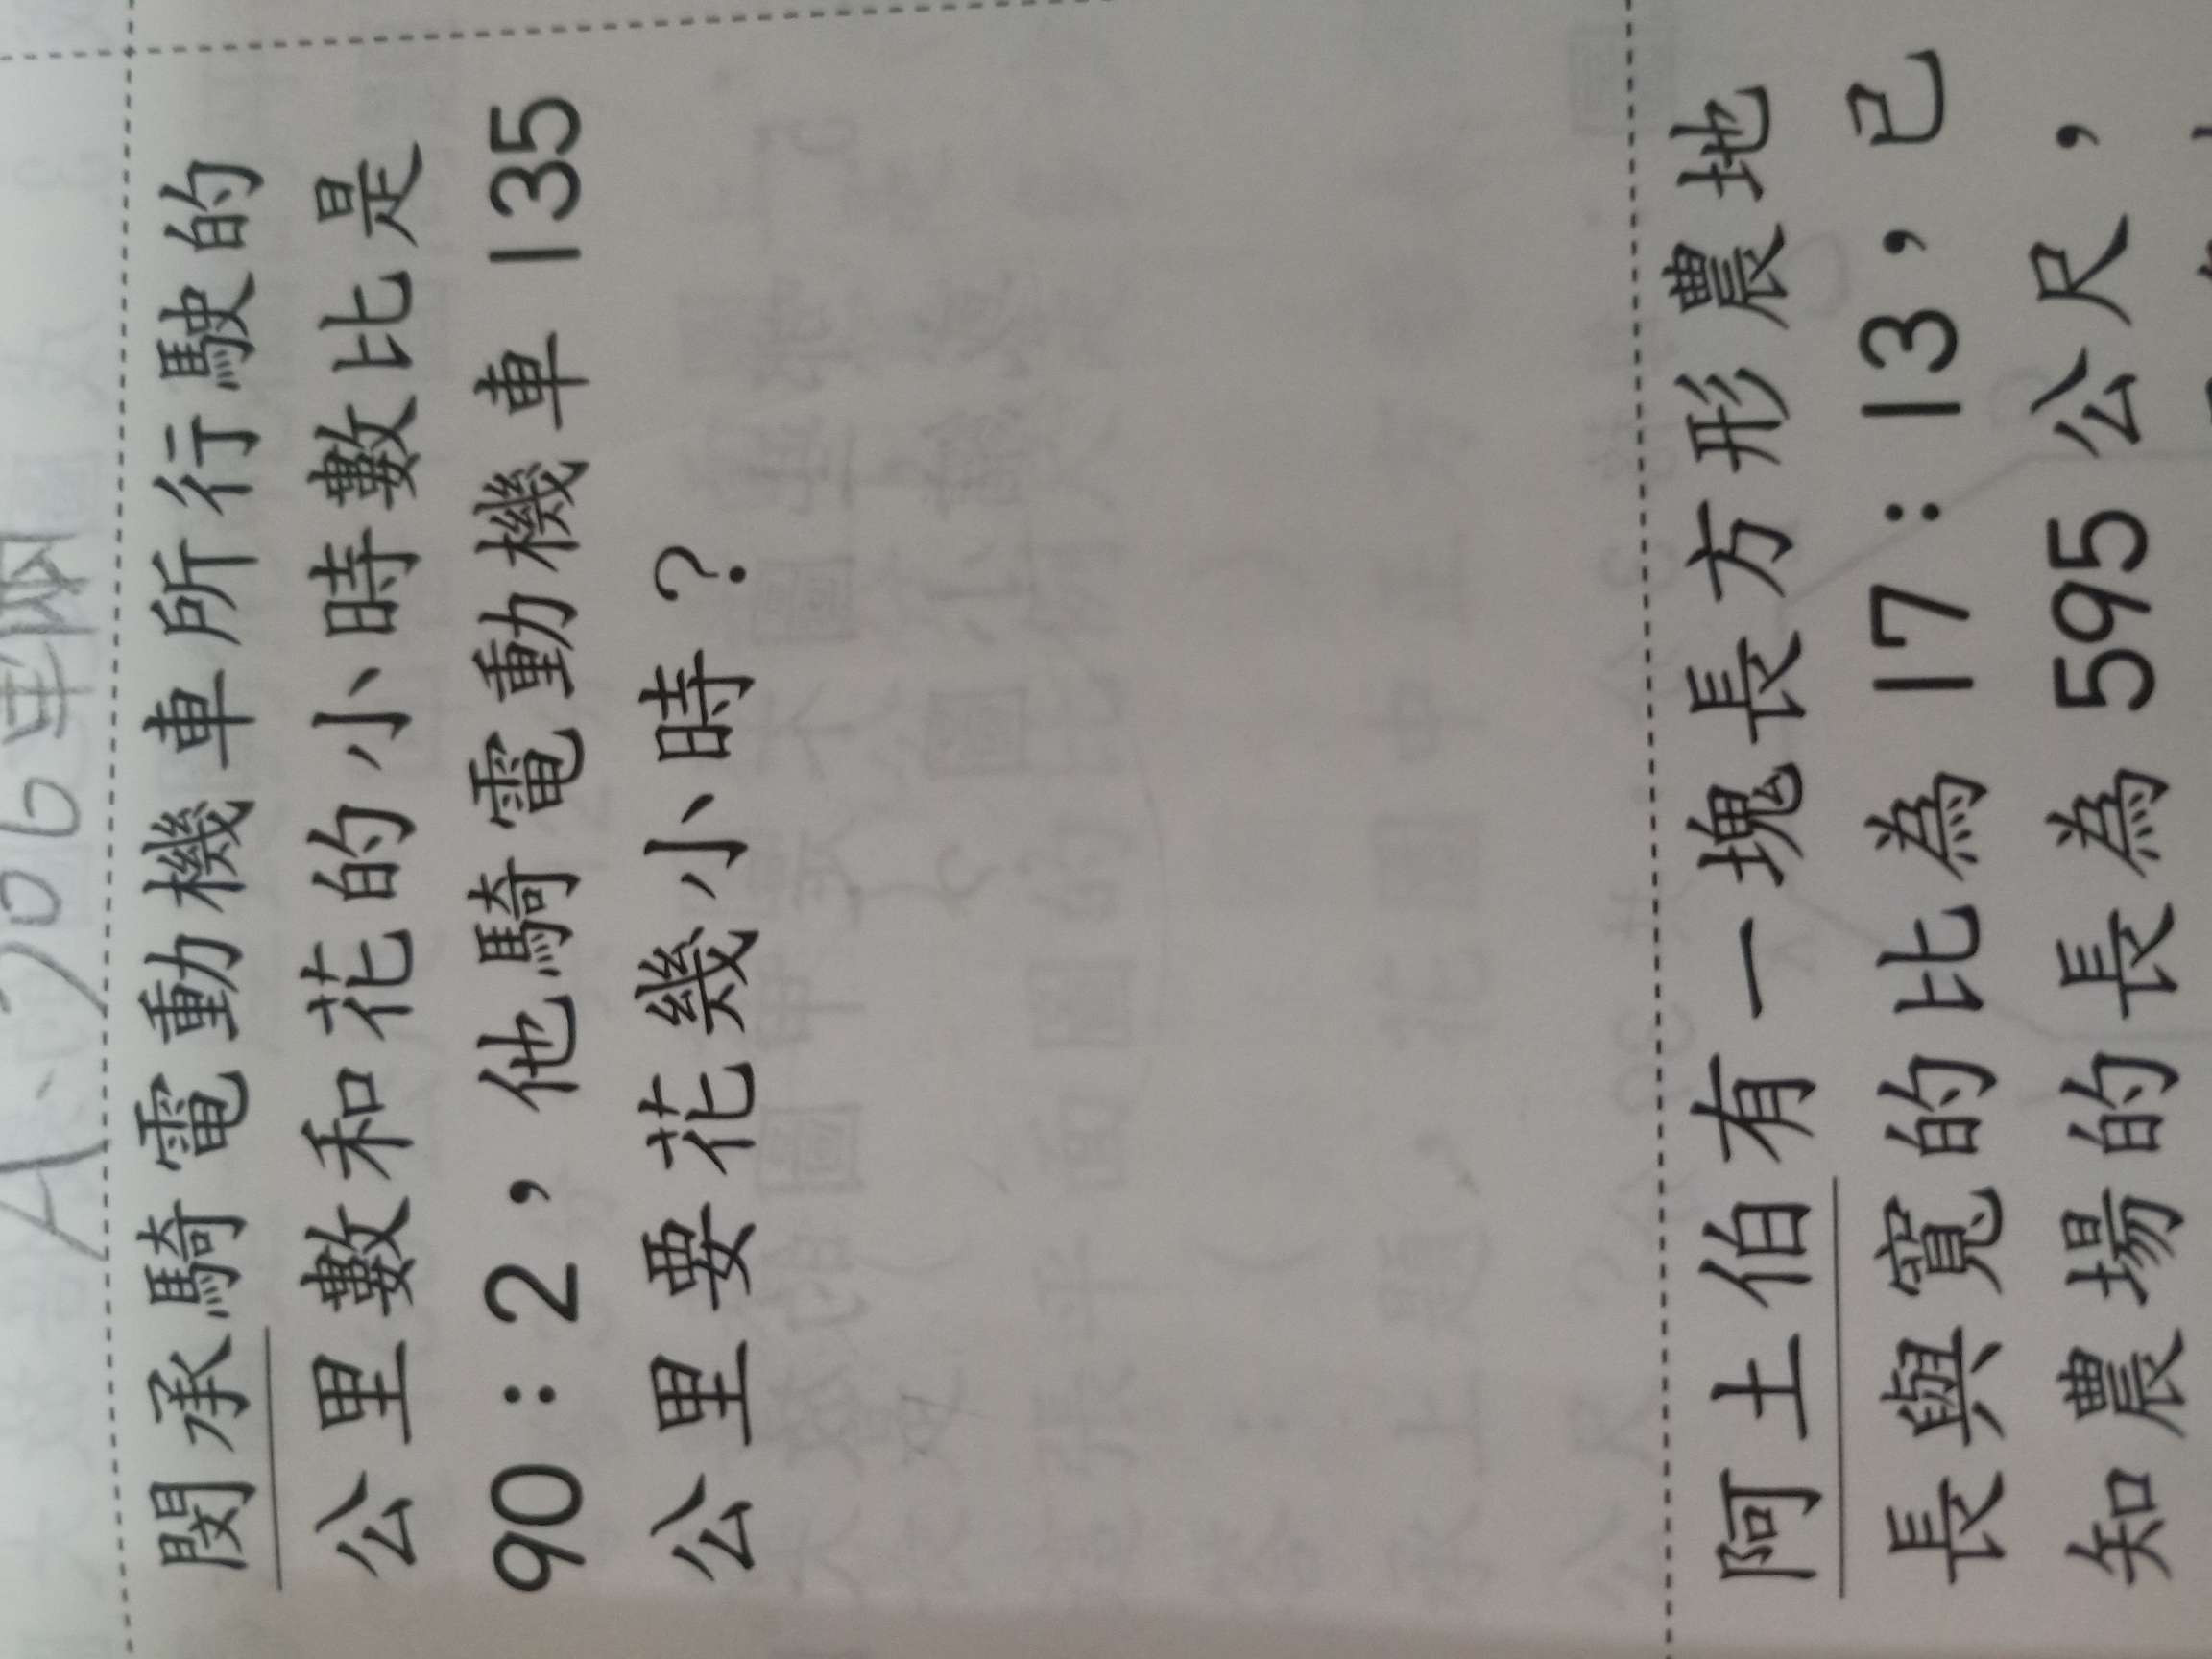 閔承騎電動機車所行駛的
公里數和花的小時數比是
90：2，他騎電動機車 135
公里要花幾小時？
阿土伯有一塊長方形農地
長與寬的比為 17：13，已
知農場的長為 595 公尺，